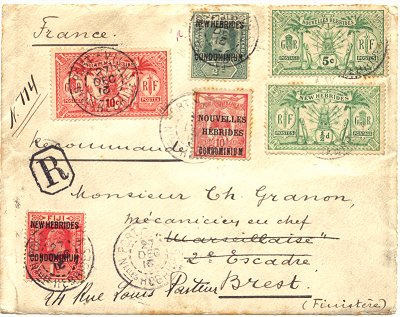 France.
N. 114
10c
POSTES
NEW HEBRIDES
CONDOMINIUM
NOUVELLES HEBRIDES
RF
5c
POSTES
NOUVELLES
HEBRIDES
10
CONDOMINIUM
NEW HEBRIDES
RF
½d
POSTES
Recommandé
R
Monsieur Ch. Granon,
mécanicien en chef
"Marseillaise"
2e Escadre
Brest.
24 Rue Louis Pasteur
(Finistère)
FIJI
NEW HEBRIDES
CONDOMINIUM
27